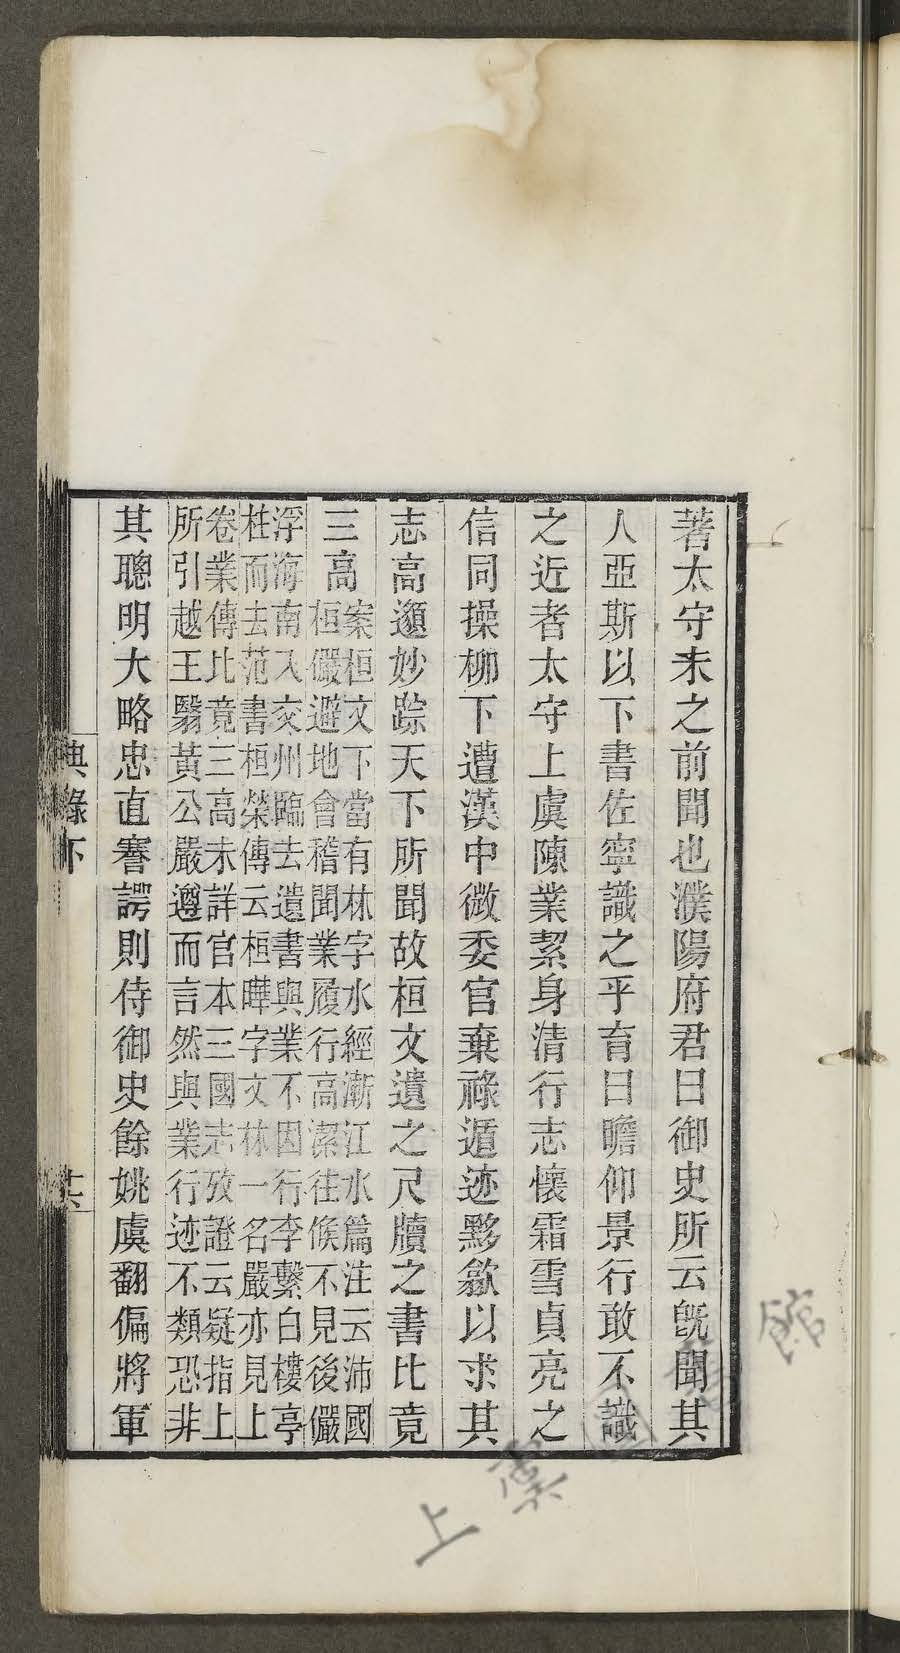 著太守未之前聞也濮陽府君曰御史所云旣聞其
人亞斯以下書佐寧識之乎育曰瞻仰景行敢不識
之近者太守上虞陳業絜身清行志懷霜雪貞亮之
信同操柳下遭漢中微委官棄祿遁迹黟歙以求其
志高邈妙踪天下所聞故桓文遺之尺牘之書比竟
三高
案桓文下當有林字水經漸江水篇注云沛國
桓儼避地會稽聞業履行高潔往候不見後儼
浮海南入交州臨去遺書與業不因行李繫白樓亭
柱而去范書桓榮傳云桓曄字文林一名嚴亦見上
卷業傳比竟三高未詳官本三國志攷證云疑指上
所引越王翳黃公嚴遵而言然與業行迹不類恐非
其聰明大略忠直謇諤則侍御史餘姚虞翻偏將軍
典錄下
廿六
上虞圖書館